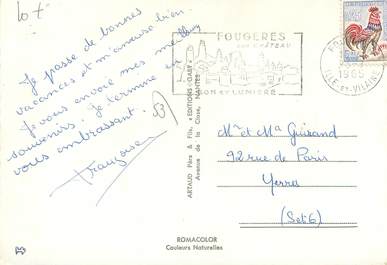 10 F
Je passe de bonnes
vacances et m'amuse bien.
Je vous envoie mes meilleurs
souvenirs. Je termine en
vous embrassant.
Françoise
53
FOUGERES
SON CHÂTEAU
SON ET LUMIERE
1965
ILLE-et-VILAINE
ARTAUD Père & Fils, "EDITIONS GABY"
Avenue de la Close, NANTES
Mr et Me Guisand
92 rue de Paris
Yerres
(Set O)
ROMACOLOR
Couleurs Naturelles